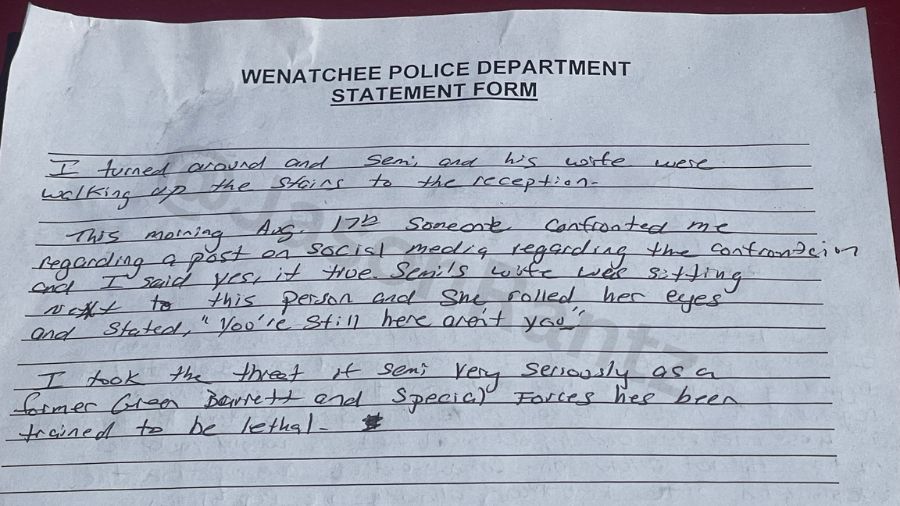 WENATCHEE POLICE DEPARTMENT
STATEMENT FORM
I turned around and Semi, and his wife were
walking up the stairs to the reception.
This morning Aug. 17th Someone Confronted me
regarding a post on social media regarding the confrontation
and I said yes, it true. Semi's wife was sitting
next to this person and She rolled her eyes
and stated, "You're still here aren't you"
I took the threat of Semi very seriously as a
former Green Barrett and Special Forces hes been
trained to be lethal.
@Jason Rantz